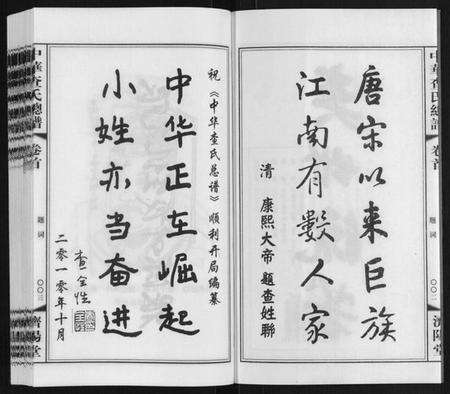 中華查氏總譜
卷首
題詞
〇〇二
濟陽堂
唐宋以来巨族
江南有數人家
清 康熙大帝 题查姓聯
祝《中华查氏总谱》顺利开局编纂
中华正在崛起
小姓亦当奋进
查全性
二零一零年十月
中華查氏總譜
卷首
題詞
〇〇三
濟陽堂